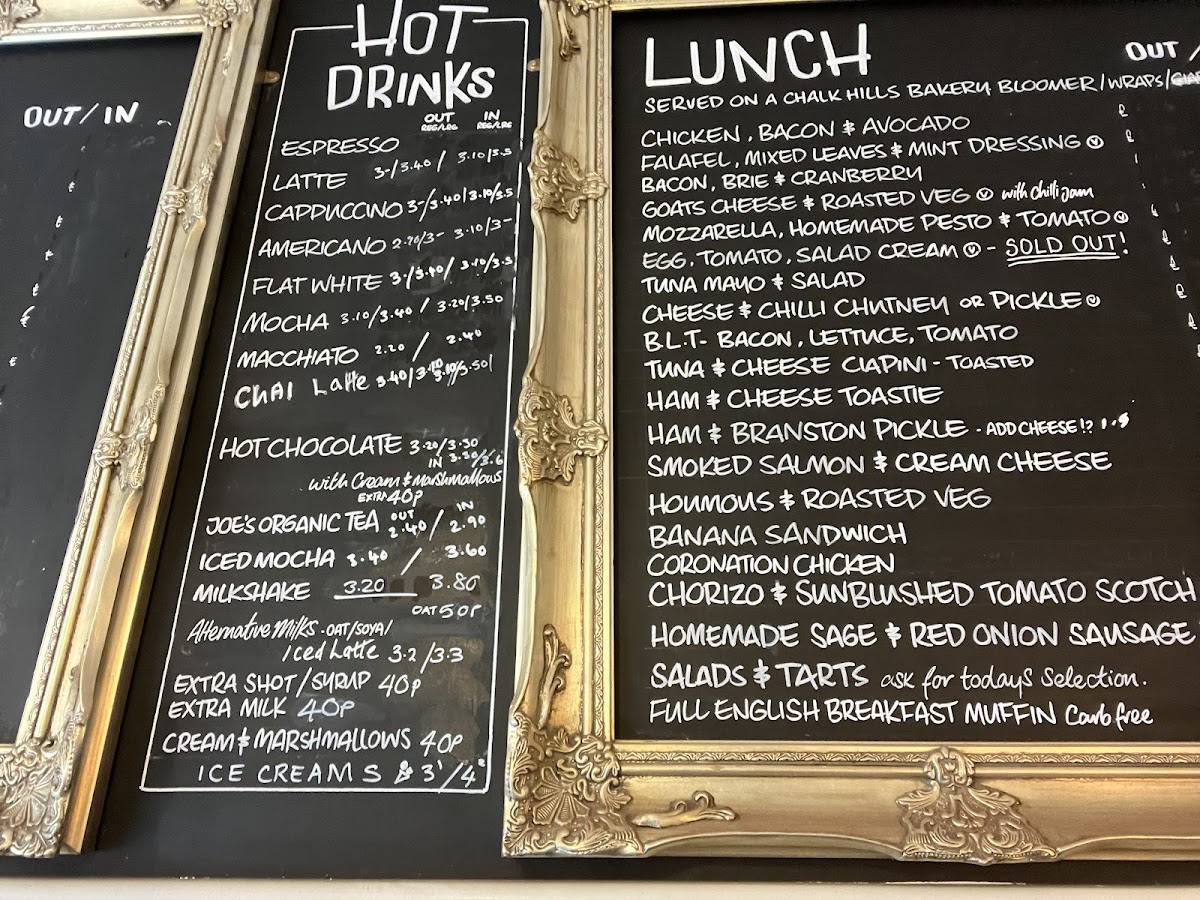 OUT / IN
HOT
DRINKS
OUT IN
REG/LRG REG/LRG
ESPRESSO
LATTE 3-/3.40 / 3.10/3.5
CAPPUCCINO 3-/3.40/3.10/3.5
AMERICANO 2.90/3- 3.10/3-
FLAT WHITE 3-/3.40/ 3.10/3.5
MOCHA 3.10/3.40 / 3.20/3.50
MACCHIATO 2.20 / 2.40
CHAI Latte 3.40/ /3.50
HOT CHOCOLATE 3.20/3.30
IN 3.50/3.6
with Cream & Marshmallows
EXTRA 40P
JOE'S ORGANIC TEA OUT 2.40 / IN 2.90
ICED MOCHA 3.40 / 3.60
MILKSHAKE 3.20 3.80
OAT 50P
Alternative Milks - OAT/SOYA/
Iced Latte 3.2 /3.3
EXTRA SHOT/SYRUP 40P
EXTRA MILK 40P
CREAM & MARSHMALLOWS 40P
ICE CREAMS 3'/4
LUNCH OUT /
SERVED ON A CHALK HILLS BAKERY BLOOMER/WRAPS/
CHICKEN, BACON & AVOCADO £
FALAFEL, MIXED LEAVES & MINT DRESSING Ⓥ
BACON, BRIE & CRANBERRY
GOATS CHEESE & ROASTED VEG Ⓥ with chilli jam
MOZZARELLA, HOMEMADE PESTO & TOMATO Ⓥ
EGG, TOMATO, SALAD CREAM Ⓥ - SOLD OUT!
TUNA MAYO & SALAD
CHEESE & CHILLI CHUTNEY OR PICKLE Ⓥ
B.L.T- BACON, LETTUCE, TOMATO
TUNA & CHEESE CIAPINI - TOASTED
HAM & CHEESE TOASTIE
HAM & BRANSTON PICKLE - ADD CHEESE!? 1.5
SMOKED SALMON & CREAM CHEESE
HOUMOUS & ROASTED VEG
BANANA SANDWICH
CORONATION CHICKEN
CHORIZO & SUNBLUSHED TOMATO SCOTCH
HOMEMADE SAGE & RED ONION SAUSAGE
SALADS & TARTS ask for todays selection.
FULL ENGLISH BREAKFAST MUFFIN Carb free